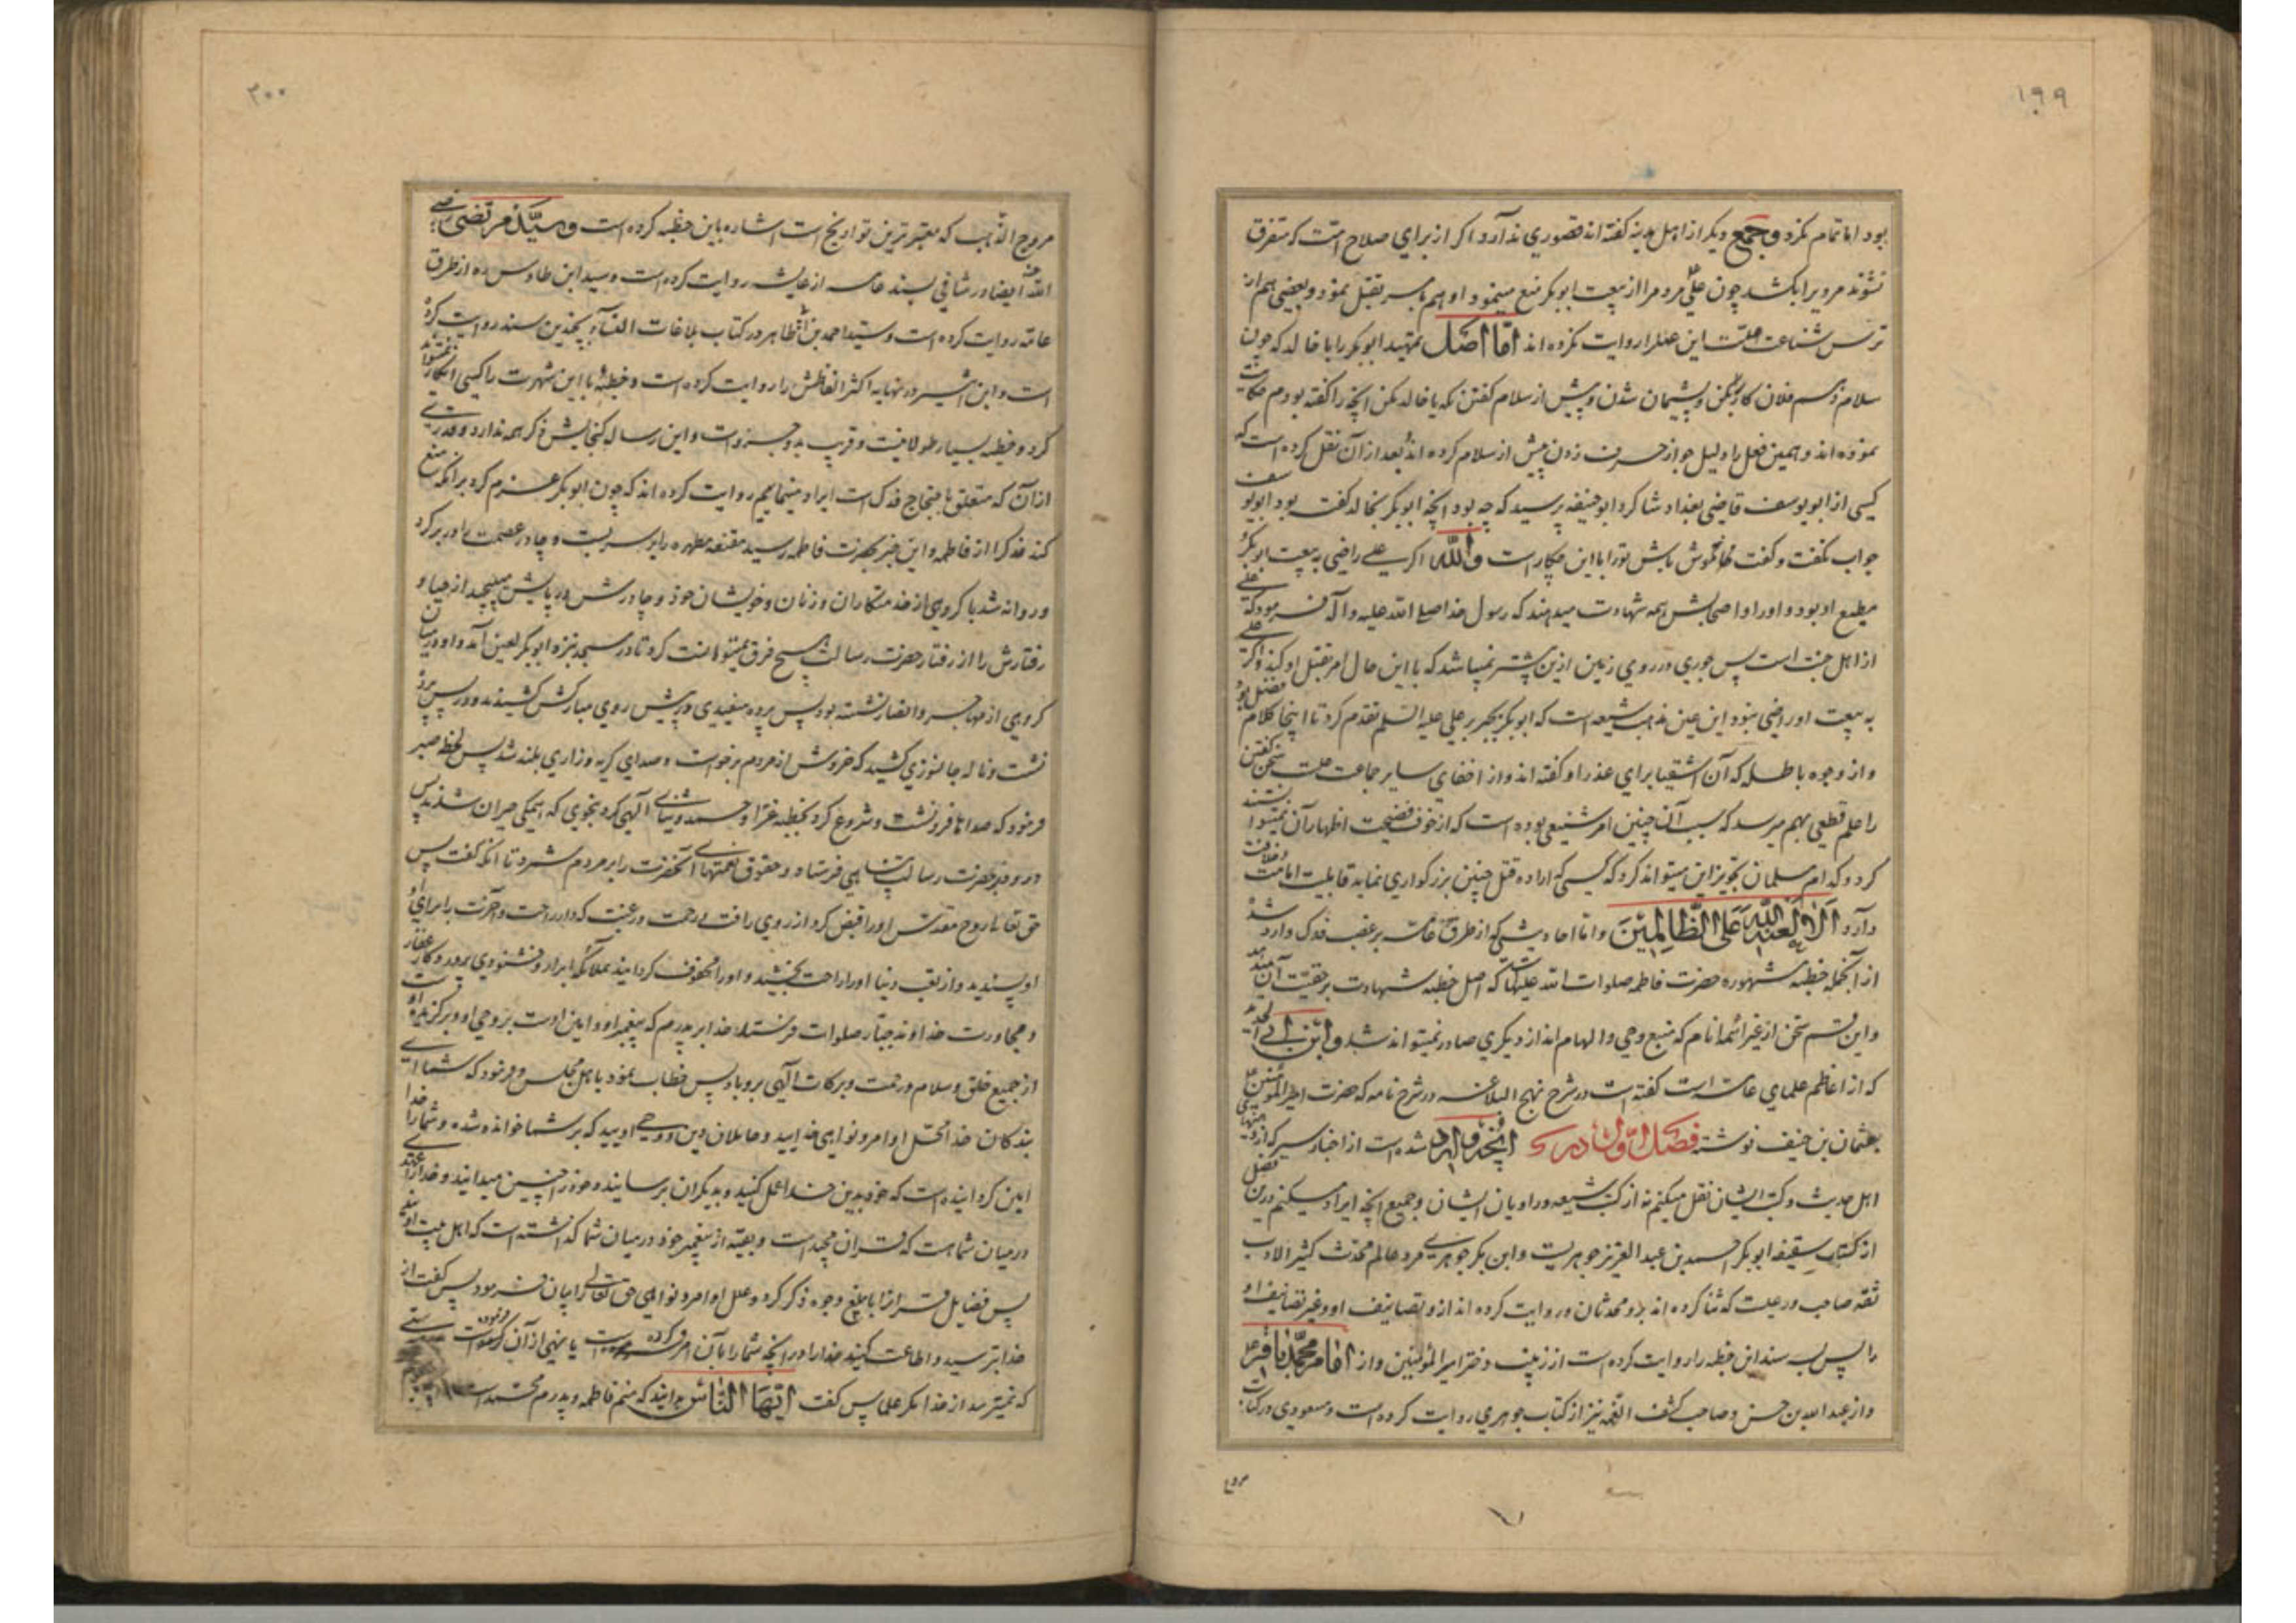 ۱۹۹
بود اما تمام نکرد و جمع دیگر از اهل مدینه گفته اند قصوری ندارد اگر از برای صلاح امت که متفرق
نشوند مردیرا بکشد چون علی مردم را از بیعت ابوبکر منع مینمود او هم بامر بقتل نمود و بعضی هم از
ترس شناعت علت این عمل را روایت نکرده اند اما اصل تمهید ابوبکر را با خالد که چون
سلام دهم فلان کار بکن و پشیمان شدن و پیش از سلام گفتن که یا خالد مکن آنچه را گفته بودم حکایت
نموده اند و همین فعل را دلیل جواز حرف زدن پیش از سلام کرده اند بعد از آن نقل کرده است که
کسی از ابویوسف قاضی بغداد شاکرد ابوحنیفه پرسید که چه بود آنچه ابوبکر بخالد گفت بود ابویوسف
جواب نگفت و گفت خاموش باش تو را با این چکار است والله اگر علی راضی به بیعت ابوبکر
مطیع او بود و او را و اصحابش همه شهادت میدهند که رسول خدا صلی الله علیه و آله فرمود که علی
از اهل جنت است پس جوری در روی زمین ازین بیشتر نمیباشد که با این حال امر بقتل او کند و اگر علی
به بیعت او راضی نبود این عین مذهب شیعه است که ابوبکر بجبر بر علی علیه السلم تقدم کرد تا اینجا کلام فضل بود
و از وجوه باطله که آن اشقیا برای عذر او گفته اند و از اخفای سایر جماعت علت سخن گفتن
را علم قطعی بهم میرسد که سبب آن چنین امر شنیعی بوده است که از خوف فضیحت اظهار آن نمیتوانستند
کرد و کدام مسلمان تجویز این میتواند کرد که کسی که اراده قتل چنین بزرگواری نماید قابلیت امامت و خلافت
دارد الا لعنة الله علی الظالمین و اما احادیثی که از طرق عامه بر غصب فدک وارد شد
از آنجمله خطبه مشهوره حضرت فاطمه صلوات الله علیها است که اصل خطبه شهادت بر حقیت آن میدهد
و این قسم سخن از غیر ائمه انام که منبع وحی و الهام اند از دیگری صادر نمیتواند شد و ابن ابی الحدید
که از اعاظم علمای عامه است گفته است در شرح نهج البلاغه در شرح نامه که حضرت امیرالمومنین ع
بعثمان بن حنیف نوشته فصل اول در آنچه وارد شده است از اخبار سیر که از
اهل حدیث و کتب ایشان نقل میکنم نه از کتب شیعه و راویان ایشان و جمیع آنچه ایراد میکنم درین فصل
از کتاب سقیفه ابوبکر احمد بن عبد العزیز جوهریست و ابن بکر جوهری مرد عالم محدث کثیر الادب
ثقه صاحب ورعیست که ثنا کرده اند برو محدثان و روایت کرده اند ازو تصانیف او و غیر تصانیف او
را پس بسند این خطبه را روایت کرده است از زینب دختر امیرالمؤمنین و از امام محمد باقر ع
و از عبدالله بن حسن و صاحب کشف الغمه نیز از کتاب جوهری روایت کرده است و مسعودی در کتاب
مروج
۲۰۰
مروج الذهب که معتبرترین تواریخ است اشاره باین خطبه کرده است و سید مرتضی رضی
الله عنه ایضا در شافی بسند عامه از عایشه روایت کرده است و سید ابن طاوس ره از طرق
عامه روایت کرده است و سید احمد بن ابی طاهر در کتاب بلاغات النساء بچندین سند روایت کرده
است و ابن اثیر در نهایه اکثر الفاظش را روایت کرده است و خطبه با این شهرت را کسی انکار نمیتواند
کرد و خطبه بسیار طولانیست و قریب بدو جزو است و این رساله گنجایش ذکر همه ندارد و قدری
از آن که متعلق باحتجاج فدک است ایراد مینمایم روایت کرده اند که چون ابوبکر عزم کرد بر آنکه منع
کند فدک را از فاطمه و این خبر بحضرت فاطمه رسید مقنعه مطهره را بر سر بست و چادر عصمت را در بر کرد
و روانه شد با گروهی از خدمتکاران و زنان و خویشان خود و چادرش در پایش میپیچید از حیا و
رفتارش را از رفتار حضرت رسالت هیچ فرق نمیتوانست کرد تا در مسجد بنزد ابوبکر لعین آمد و او در میان
گروهی از مهاجر و انصار نشسته بود پس پرده سفیدی در پیش روی مبارکش کشیدند و در پس پرده
نشست و ناله جانسوزی کشید که خروش از مردم برخواست و صدای گریه و زاری بلند شد پس لحظه صبر
فرمود که صداها فرو نشست و شروع کرد بخطبه غرا و حمد و ثنای الهی کرد بنحوی که همگی حیران شدند پس
درود بر حضرت رسالت پناهی فرستاد و حقوق نعمتهای آنحضرت را بر مردم شمرد تا آنکه گفت پس
حق تعالی روح مقدس او را قبض کرد از روی رافت و رحمت و رغبت که دار راحت و آخرت را برای او
او پسندید و از تعب دنیا او را راحت بخشید و او را محفوف گردانید بملائکه ابرار و خشنودی پروردگار غفار
و مجاورت خداوند جبار صلوات فرستد خدا بر پدرم که پیغمبر او و امین اوست بر وحی او و برگزیده اوست
از جمیع خلق و سلام و رحمت و برکات الهی برو باد پس خطاب نمود با اهل مجلس و فرمود که شما ای
بندگان خدا محل اوامر و نواهی خدایید و حاملان دین و وحی اویید که بر شما خوانده شده و شما را خدا
امین گردانیده است که خود بدین خدا عمل کنید و بدیگران برسانید و خود را چنین میدانید و خدا را عهدی
در میان شما هست که قران مجید است و بقیه از پیغمبر خود در میان شما گذاشته است که اهل بیت اویند
پس فضایل قرانرا بابلغ وجوه ذکر کرد و علل اوامر و نواهی حق تعالی را بیان فرمود پس گفت از
خدا بترسید و اطاعت کنید خدا را در آنچه شما را بآن امر کرده است یا نهی از آن فرموده
که نمیترسد از خدا مگر علما پس گفت ایها الناس بدانید که منم فاطمه و پدرم محمد است